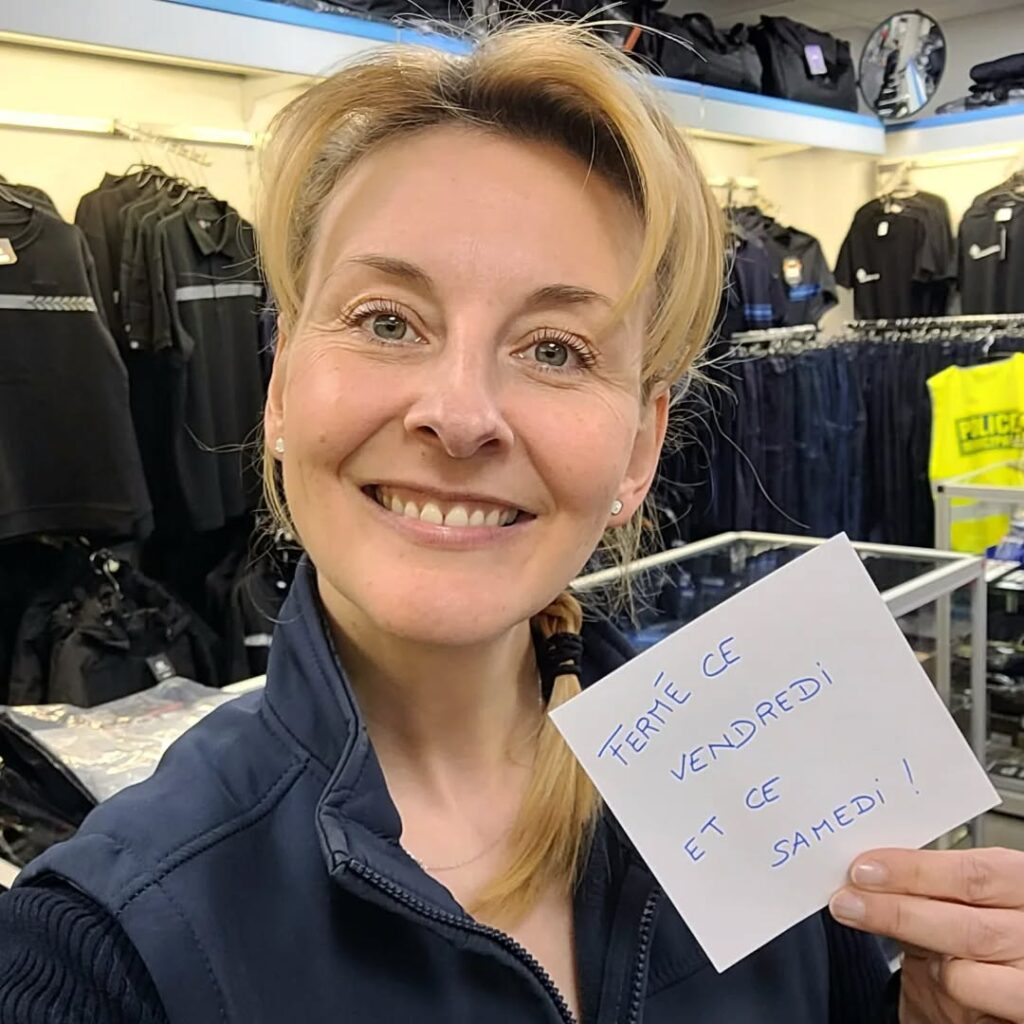 FERMÉ CE
VENDREDi
ET CE
SAMEDi !
POLICE